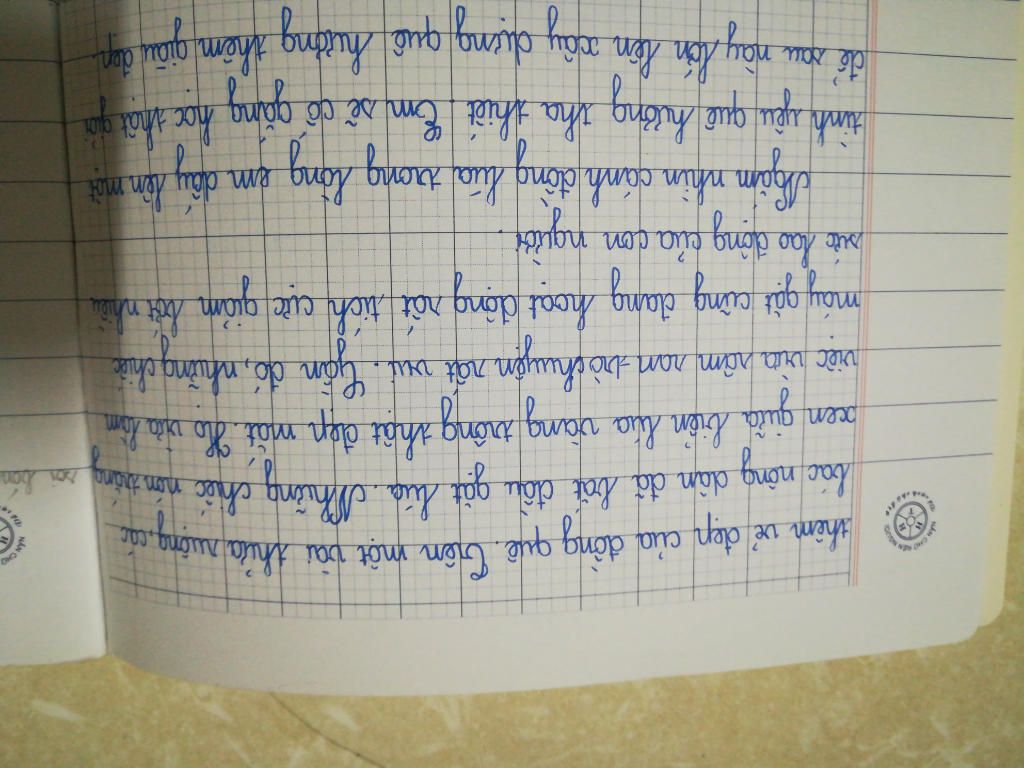 thêm vẻ đẹp của đồng quê. Trên một vài thửa ruộng, các
bác nông dân đã bắt đầu gặt lúa. Những chiếc nón trắng
xen giữa biển lúa vàng trông thật đẹp mắt. Họ vừa làm
việc vừa râm ran trò chuyện rất vui. Gần đó, những chiếc
máy gặt cũng đang hoạt động rất tích cực giảm bớt nhiều
sức lao động của con người.
Ngắm nhìn cánh đồng lúa trong lòng em dấy lên một
tình yêu quê hương tha thiết. Em sẽ cố gắng học thật giỏi
để sau này lớn lên xây dựng quê hương thêm giàu đẹp.